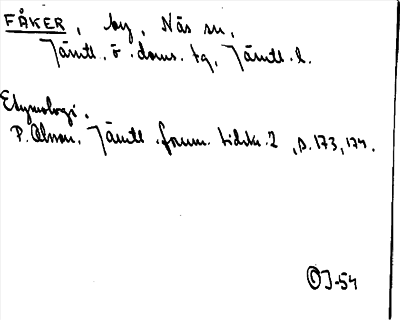 FÅKER, by, Näs sn,
Jämtl. ö. doms. tg, Jämtl. l.
Etymologi.
P. Olsson. Jämtl. fornm. tidskr. 2, s. 173, 174.
OJ-54